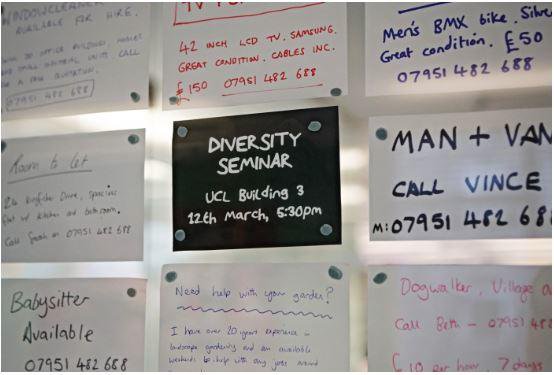 WINDOWCLEANER
AVAILABLE FOR HIRE.
CALL
FOR A FREE QUOTATION.
07951 482 688
TV FOR
42 INCH LCD TV. SAMSUNG.
GREAT CONDITION. CABLES INC.
£150 07951 482 688
Men's BMX bike. Silve
Great condition. £50
07951 482 688
Room to let
Drive, spacious
flat w/ kitchen and bathroom.
Call Sarah on 07951 482 688
DIVERSITY
SEMINAR
UCL Building 3
12th March, 5:30pm
MAN + VAN
CALL VINCE
M: 07951 482 688
Babysitter
Available
07951 482 688
Need help with your garden?
I have over 20 years experience in
landscape gardening and am available
weekends to help with any jobs around
Dogwalker, Village a
Call Beth - 07951 48
£10 per hour, 7 days